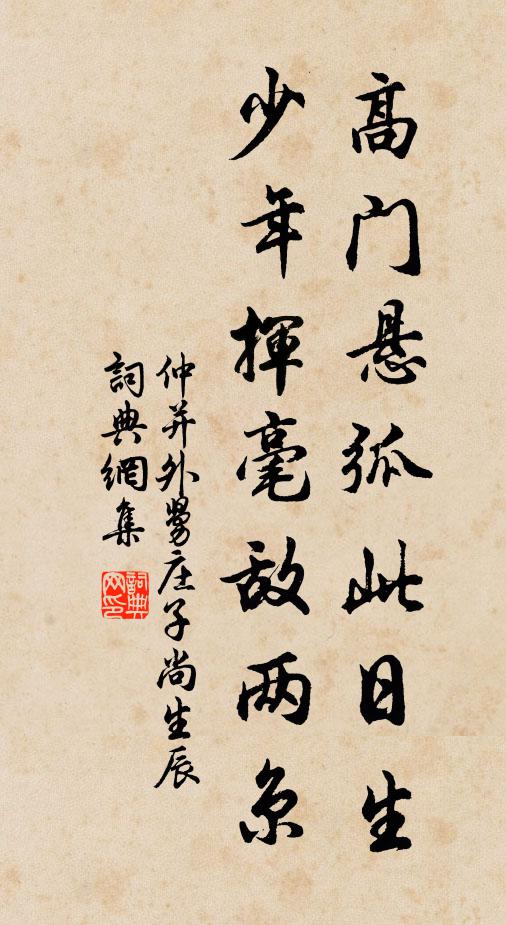 高门悬弧此日生
少年挥毫敌两京
仲并外舅庄子尚生辰
詞典網集
詞典网印